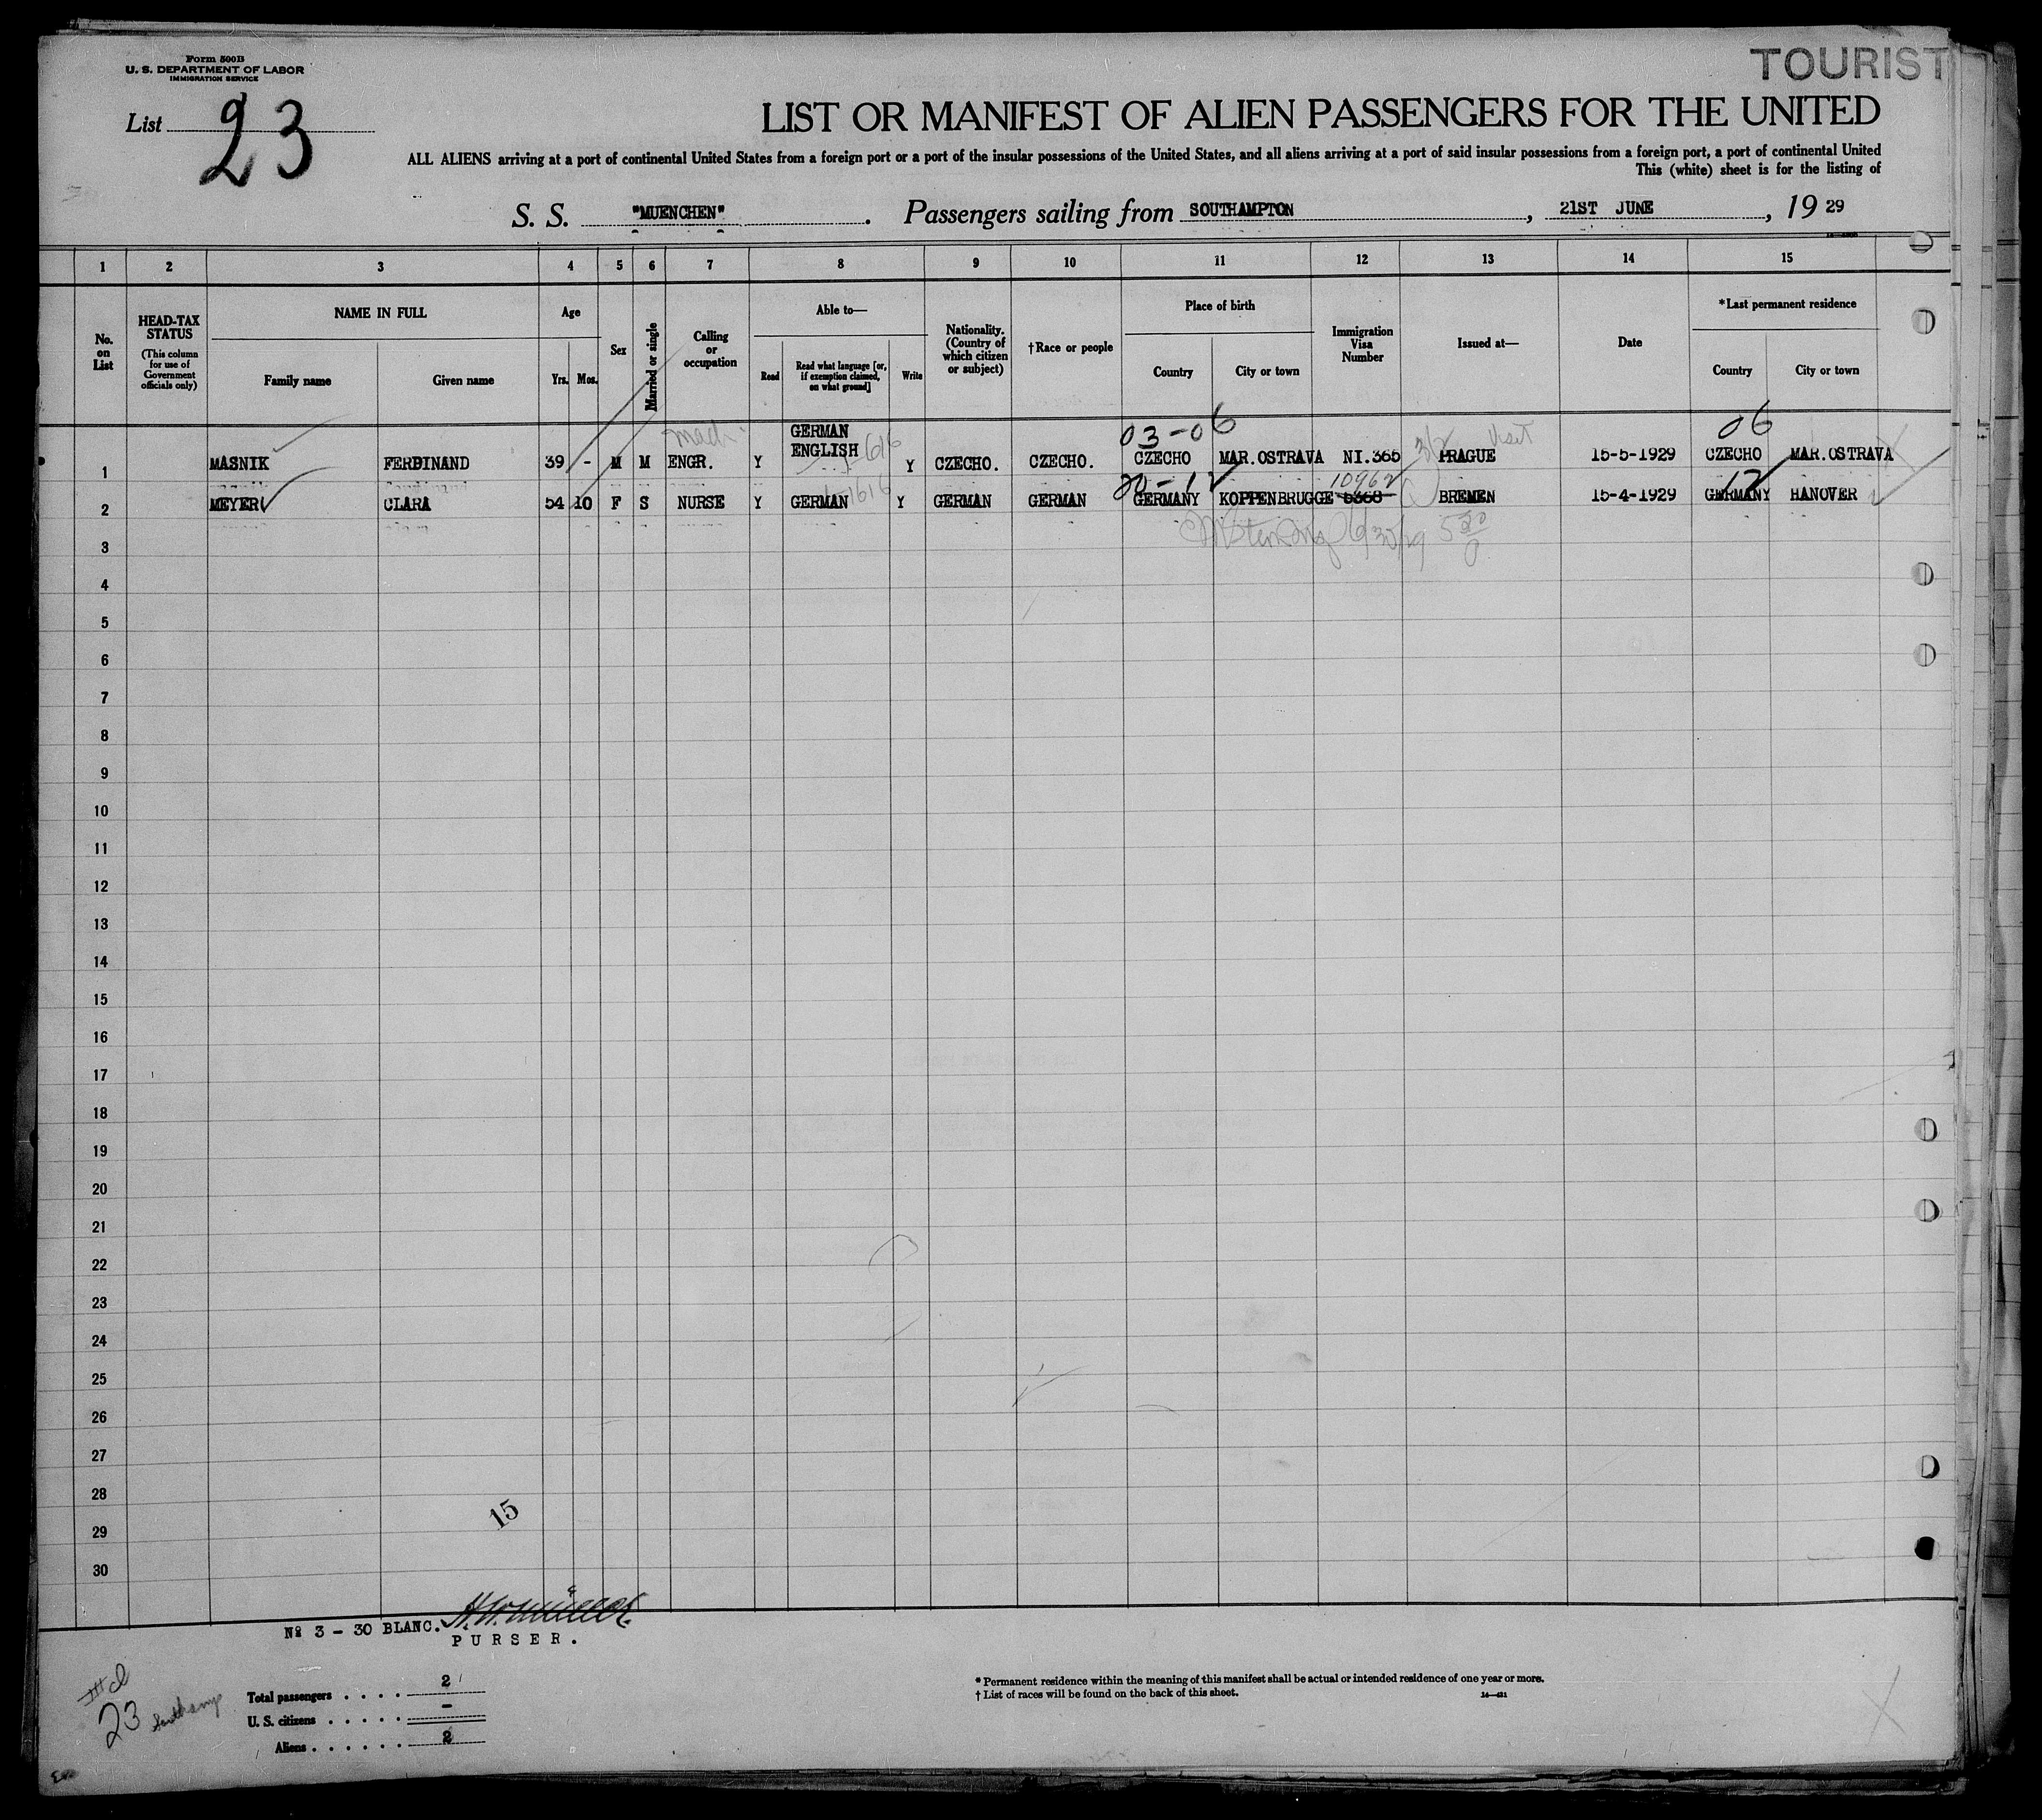 Form 500B
U. S. DEPARTMENT OF LABOR
IMMIGRATION SERVICE
TOURIST
List 23
LIST OR MANIFEST OF ALIEN PASSENGERS FOR THE UNITED
ALL ALIENS arriving at a port of continental United States from a foreign port or a port of the insular possessions of the United States, and all aliens arriving at a port of said insular possessions from a foreign port, a port of continental United
This (white) sheet is for the listing of
S. S. "MUENCHEN". Passengers sailing from SOUTHAMPTON, 21ST JUNE, 19 29
1 2 3 4 5 6 7 8 9 10 11 12 13 14 15
No. on List
HEAD-TAX STATUS
(This column for use of Government officials only)
NAME IN FULL
Family name
Given name
Age
Yrs. Mos.
Sex
Married or single
Calling or occupation
Able to—
Read
Read what language [or, if exemption claimed, on what ground]
Write
Nationality. (Country of which citizen or subject)
†Race or people
Place of birth
Country
City or town
Immigration Visa Number
Issued at—
Date
*Last permanent residence
Country
City or town
mach. 03-06 visit 06
1 MASNIK FERDINAND 39 - M M ENGR. Y GERMAN ENGLISH Y CZECHO. CZECHO. CZECHO MAR.OSTRAVA NI.365 PRAGUE 15-5-1929 CZECHO MAR.OSTRAVA
20-12 10962 12
2 MEYER CLARA 54 10 F S NURSE Y GERMAN Y GERMAN GERMAN GERMANY KOPPENBRUGGE 5368 BREMEN 15-4-1929 GERMANY HANOVER
6/30/29
3
4
5
6
7
8
9
10
11
12
13
14
15
16
17
18
19
20
21
22
23
24
25
26
27
28
29
30
15
Nº 3 - 30 BLANC.
PURSER.
Total passengers . . . . 2
U. S. citizens . . . . . -
Aliens . . . . . . 2
23 Southamp
* Permanent residence within the meaning of this manifest shall be actual or intended residence of one year or more.
† List of races will be found on the back of this sheet.